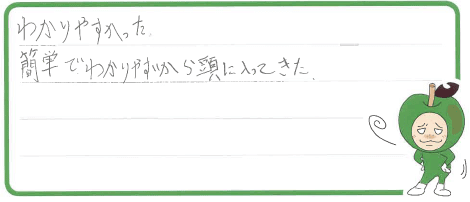 わかりやすかった。
簡単でわかりやすいから頭に入ってきた。